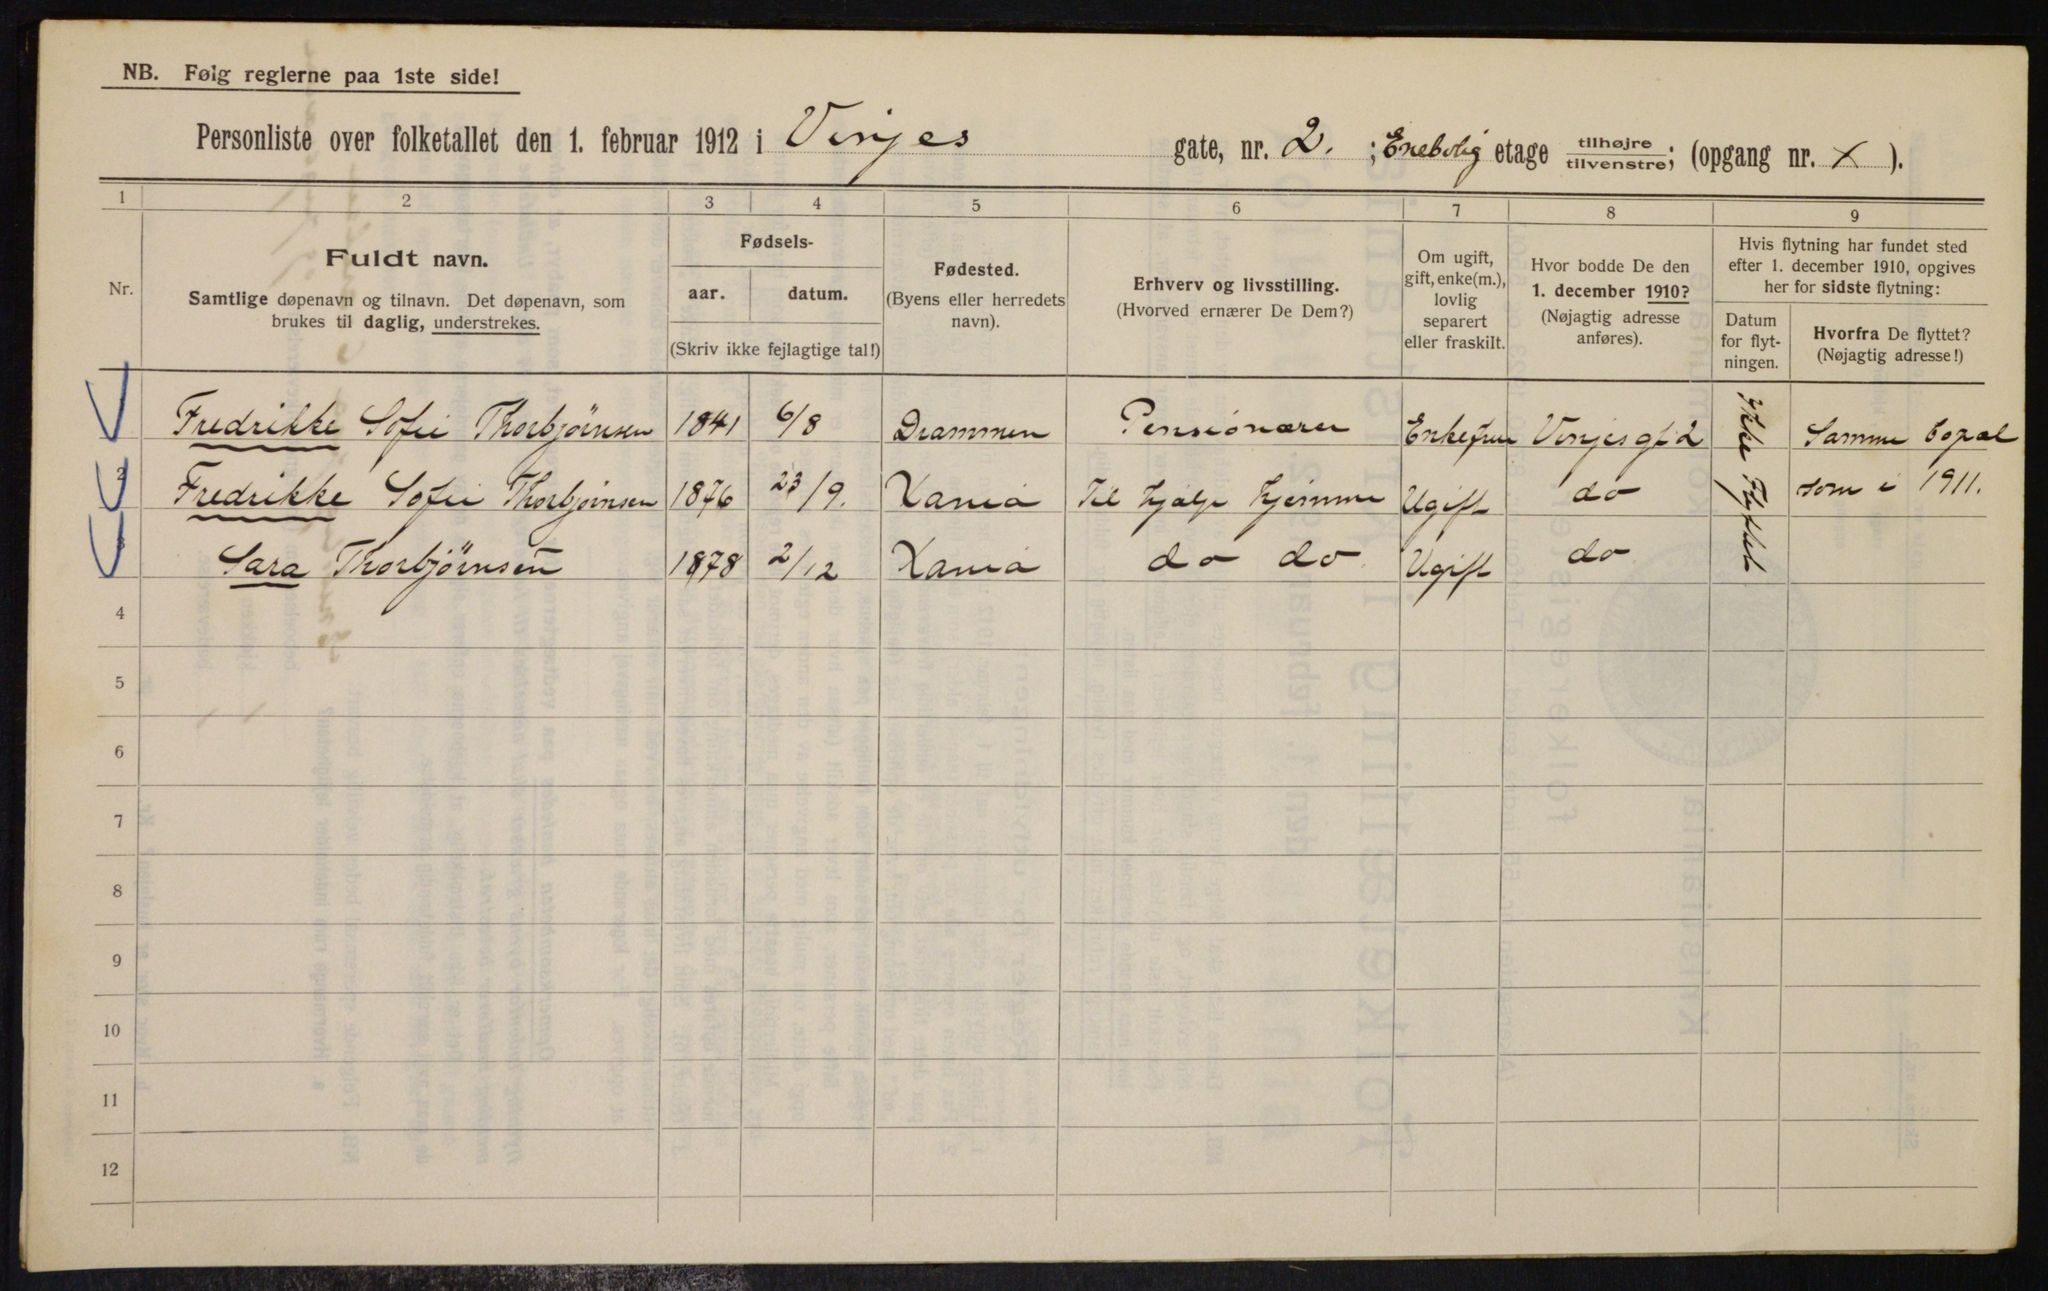 NB. Følg reglerne paa 1ste side!
Personliste over folketallet den 1. februar 1912 i Vinjes gate, nr. 2. ; Enebolig etage tilhøjre/tilvenstre; (opgang nr. x ).
1 2 3 4 5 6 7 8 9
Nr.
Fuldt navn.
Samtlige døpenavn og tilnavn. Det døpenavn, som
brukes til daglig, understrekes.
Fødsels-
aar. datum.
(Skriv ikke fejlagtige tal!)
Fødested.
(Byens eller herredets
navn).
Erhverv og livsstilling.
(Hvorved ernærer De Dem?)
Om ugift,
gift, enke(m.),
lovlig
separert
eller fraskilt.
Hvor bodde De den
1. december 1910?
(Nøjagtig adresse
anføres).
Hvis flytning har fundet sted
efter 1. december 1910, opgives
her for sidste flytning:
Datum
for flyt-
ningen.
Hvorfra De flyttet?
(Nøjagtig adresse!)
Fredrikke Sofie Thorbjørnsen 1841 6/8 Drammen Pensionærer Enkefrue Vinjesgt 2 Ikke Flyttet Samme bopæl
2 Fredrikke Sofie Thorbjørnsen 1876 23/9. Xania Til hjælp hjemme Ugift do som i 1911.
3 Sara Thorbjørnsen 1878 2/12 Xania do do Ugift do
4
5
6
7
8
9
10
11
12